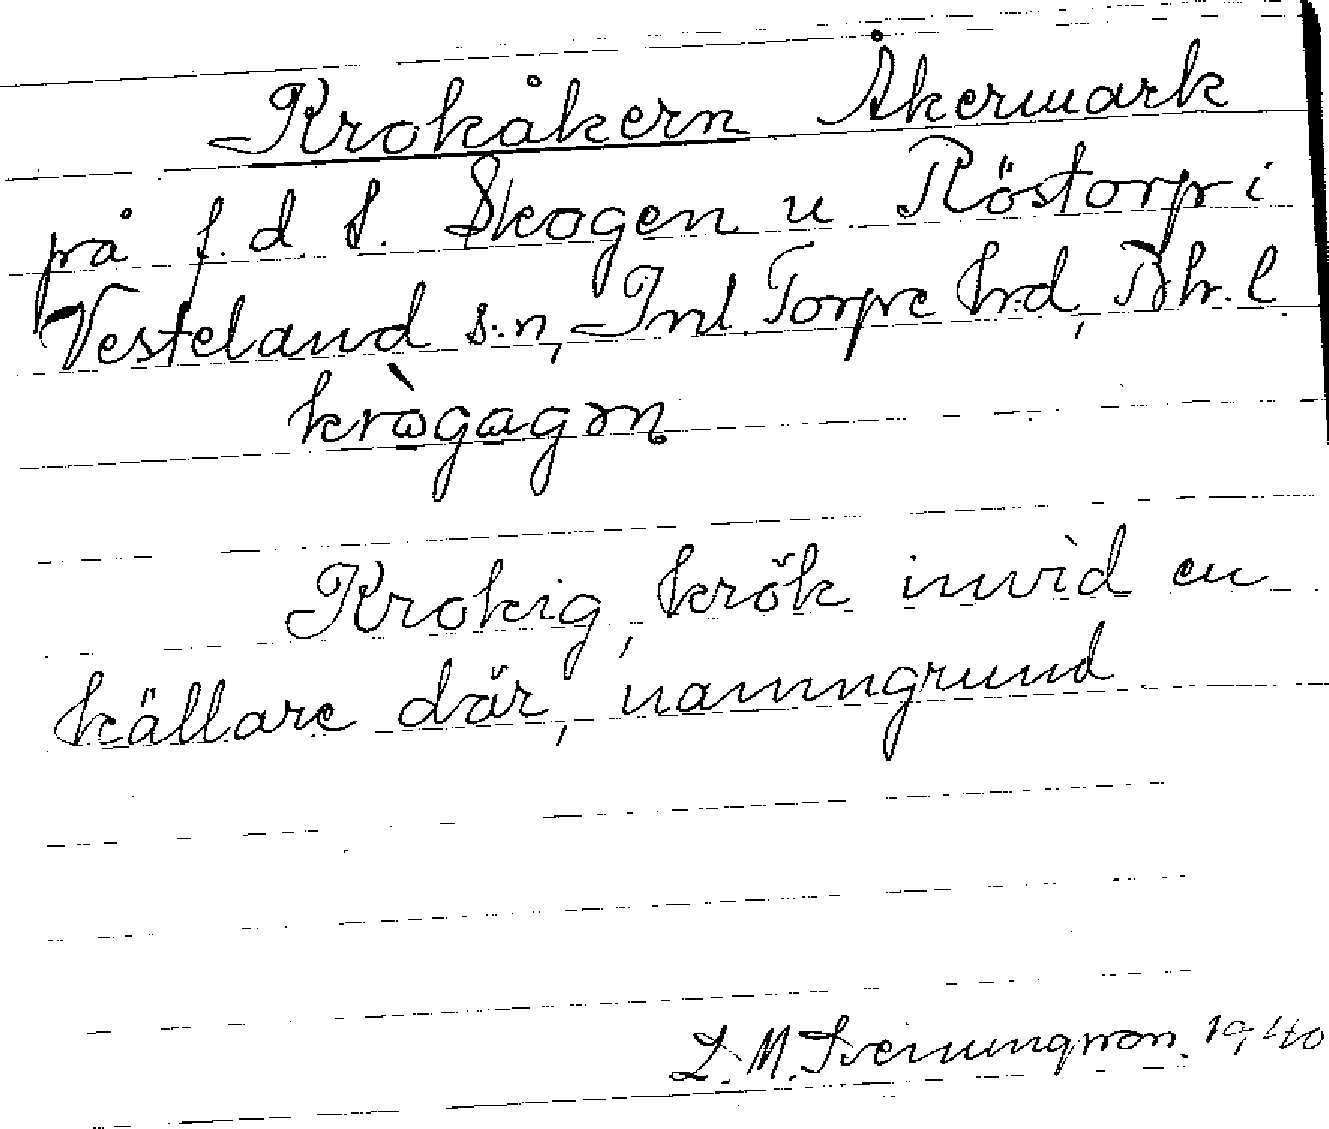 Krokåkern Åkermark
på f. d. t. Skogen u Röstorp i
Vesteland s:n, Inl. Torpe hrd, Bhr. l.
kròգagɘn
Krokig, krök invid en
källare där, namngrund
L. M. Svenungsson. 1940